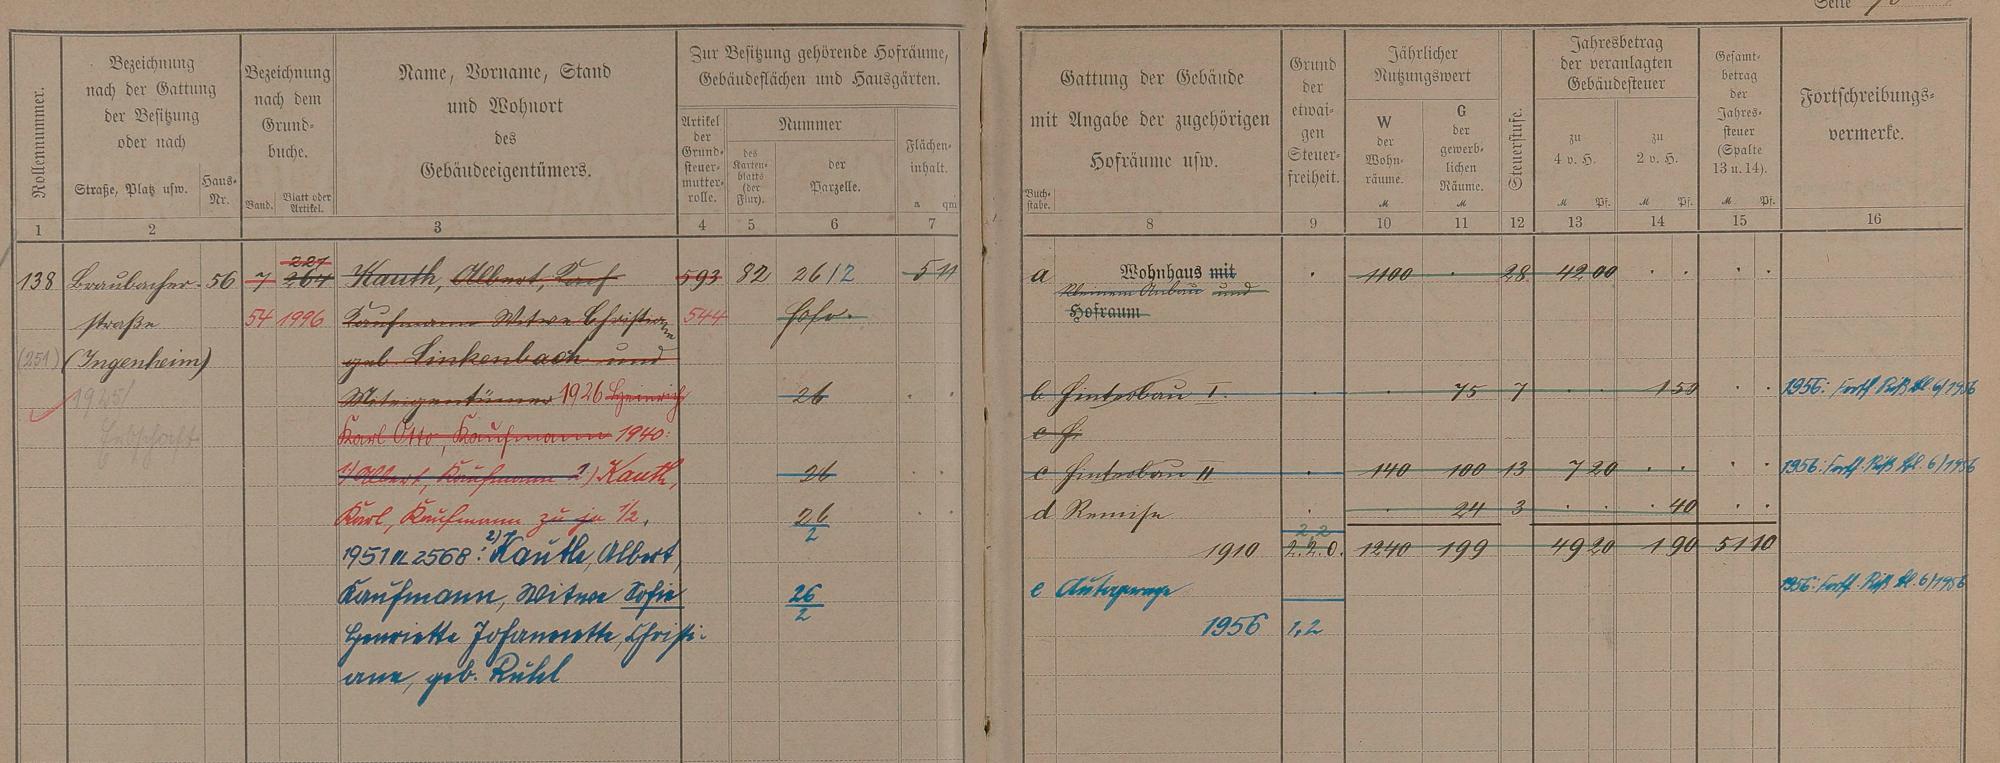 Seite
Rollennummer.
Bezeichnung
nach der Gattung
der Besitzung
oder nach
Straße, Platz usw.
Haus-
Nr.
Bezeichnung
nach dem
Grund-
buche.
Band.
Blatt oder
Artikel.
Name, Vorname, Stand
und Wohnort
des
Gebäudeeigentümers.
Zur Besitzung gehörende Hofräume,
Gebäudeflächen und Hausgärten.
Artikel
der
Grund-
steuer-
mutter-
rolle.
Nummer
des
Karten-
blatts
(der
Flur).
der
Parzelle.
Flächen-
inhalt.
a qm
Gattung der Gebäude
mit Angabe der zugehörigen
Hofräume usw.
Buch-
stabe.
Grund
der
etwai-
gen
Steuer-
freiheit.
Jährlicher
Nutzungswert
W
der
Wohn-
räume.
M
G
der
gewerb-
lichen
Räume.
M
Steuerstufe.
Jahresbetrag
der veranlagten
Gebäudesteuer
zu
4 v. H.
M Pf.
zu
2 v. H.
M Pf.
Gesamt-
betrag
der
Jahres-
steuer
(Spalte
13 u. 14).
M Pf.
Fortschreibungs-
vermerke.
1 2 3 4 5 6 7 8 9 10 11 12 13 14 15 16
227
138 Braubacher- 56 7 264 Kauth, Albert, 593 82 26/2 5 11 a Wohnhaus mit 1100 28 42 00
kleinem Anbau und
straße 54 1996 Kaufmann Witwe Christiane 544 Hofr. Hofraum
(251) (Ingenheim) geb. Linkenbach und
1925/ Miteigentümer 1926 Heinrich 26 b Hinterbau I. 75 7 1 50 1956: Fortf. Riß Bl. 6/1956
Erbschaft Karl Otto, Kaufmann 1940: c Hi
1) Albert, Kaufmann 2) Kauth, 26 c Hinterbau II 140 100 13 7 20 1956: Fortf. Riß Bl. 6/1956
Karl, Kaufmann zu je 1/2. 26/2 d Remise 24 3 40
2,2
1951 N 2568: 2) Kauth, Albert, 1910 2.2.0. 1240 199 49 20 1 90 51 10
Kaufmann, Witwe Sofie 26/2 e Autogarage 1956: Fortf. Riß Bl. 6/1956
Henriette Johannette, Christi- 1956 1,2
ane, geb. Rühl